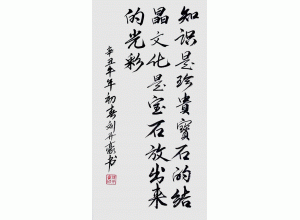 知识是珍貴寶石的结
晶文化是宝石放出来
的光彩
辛丑牛年初春刘书